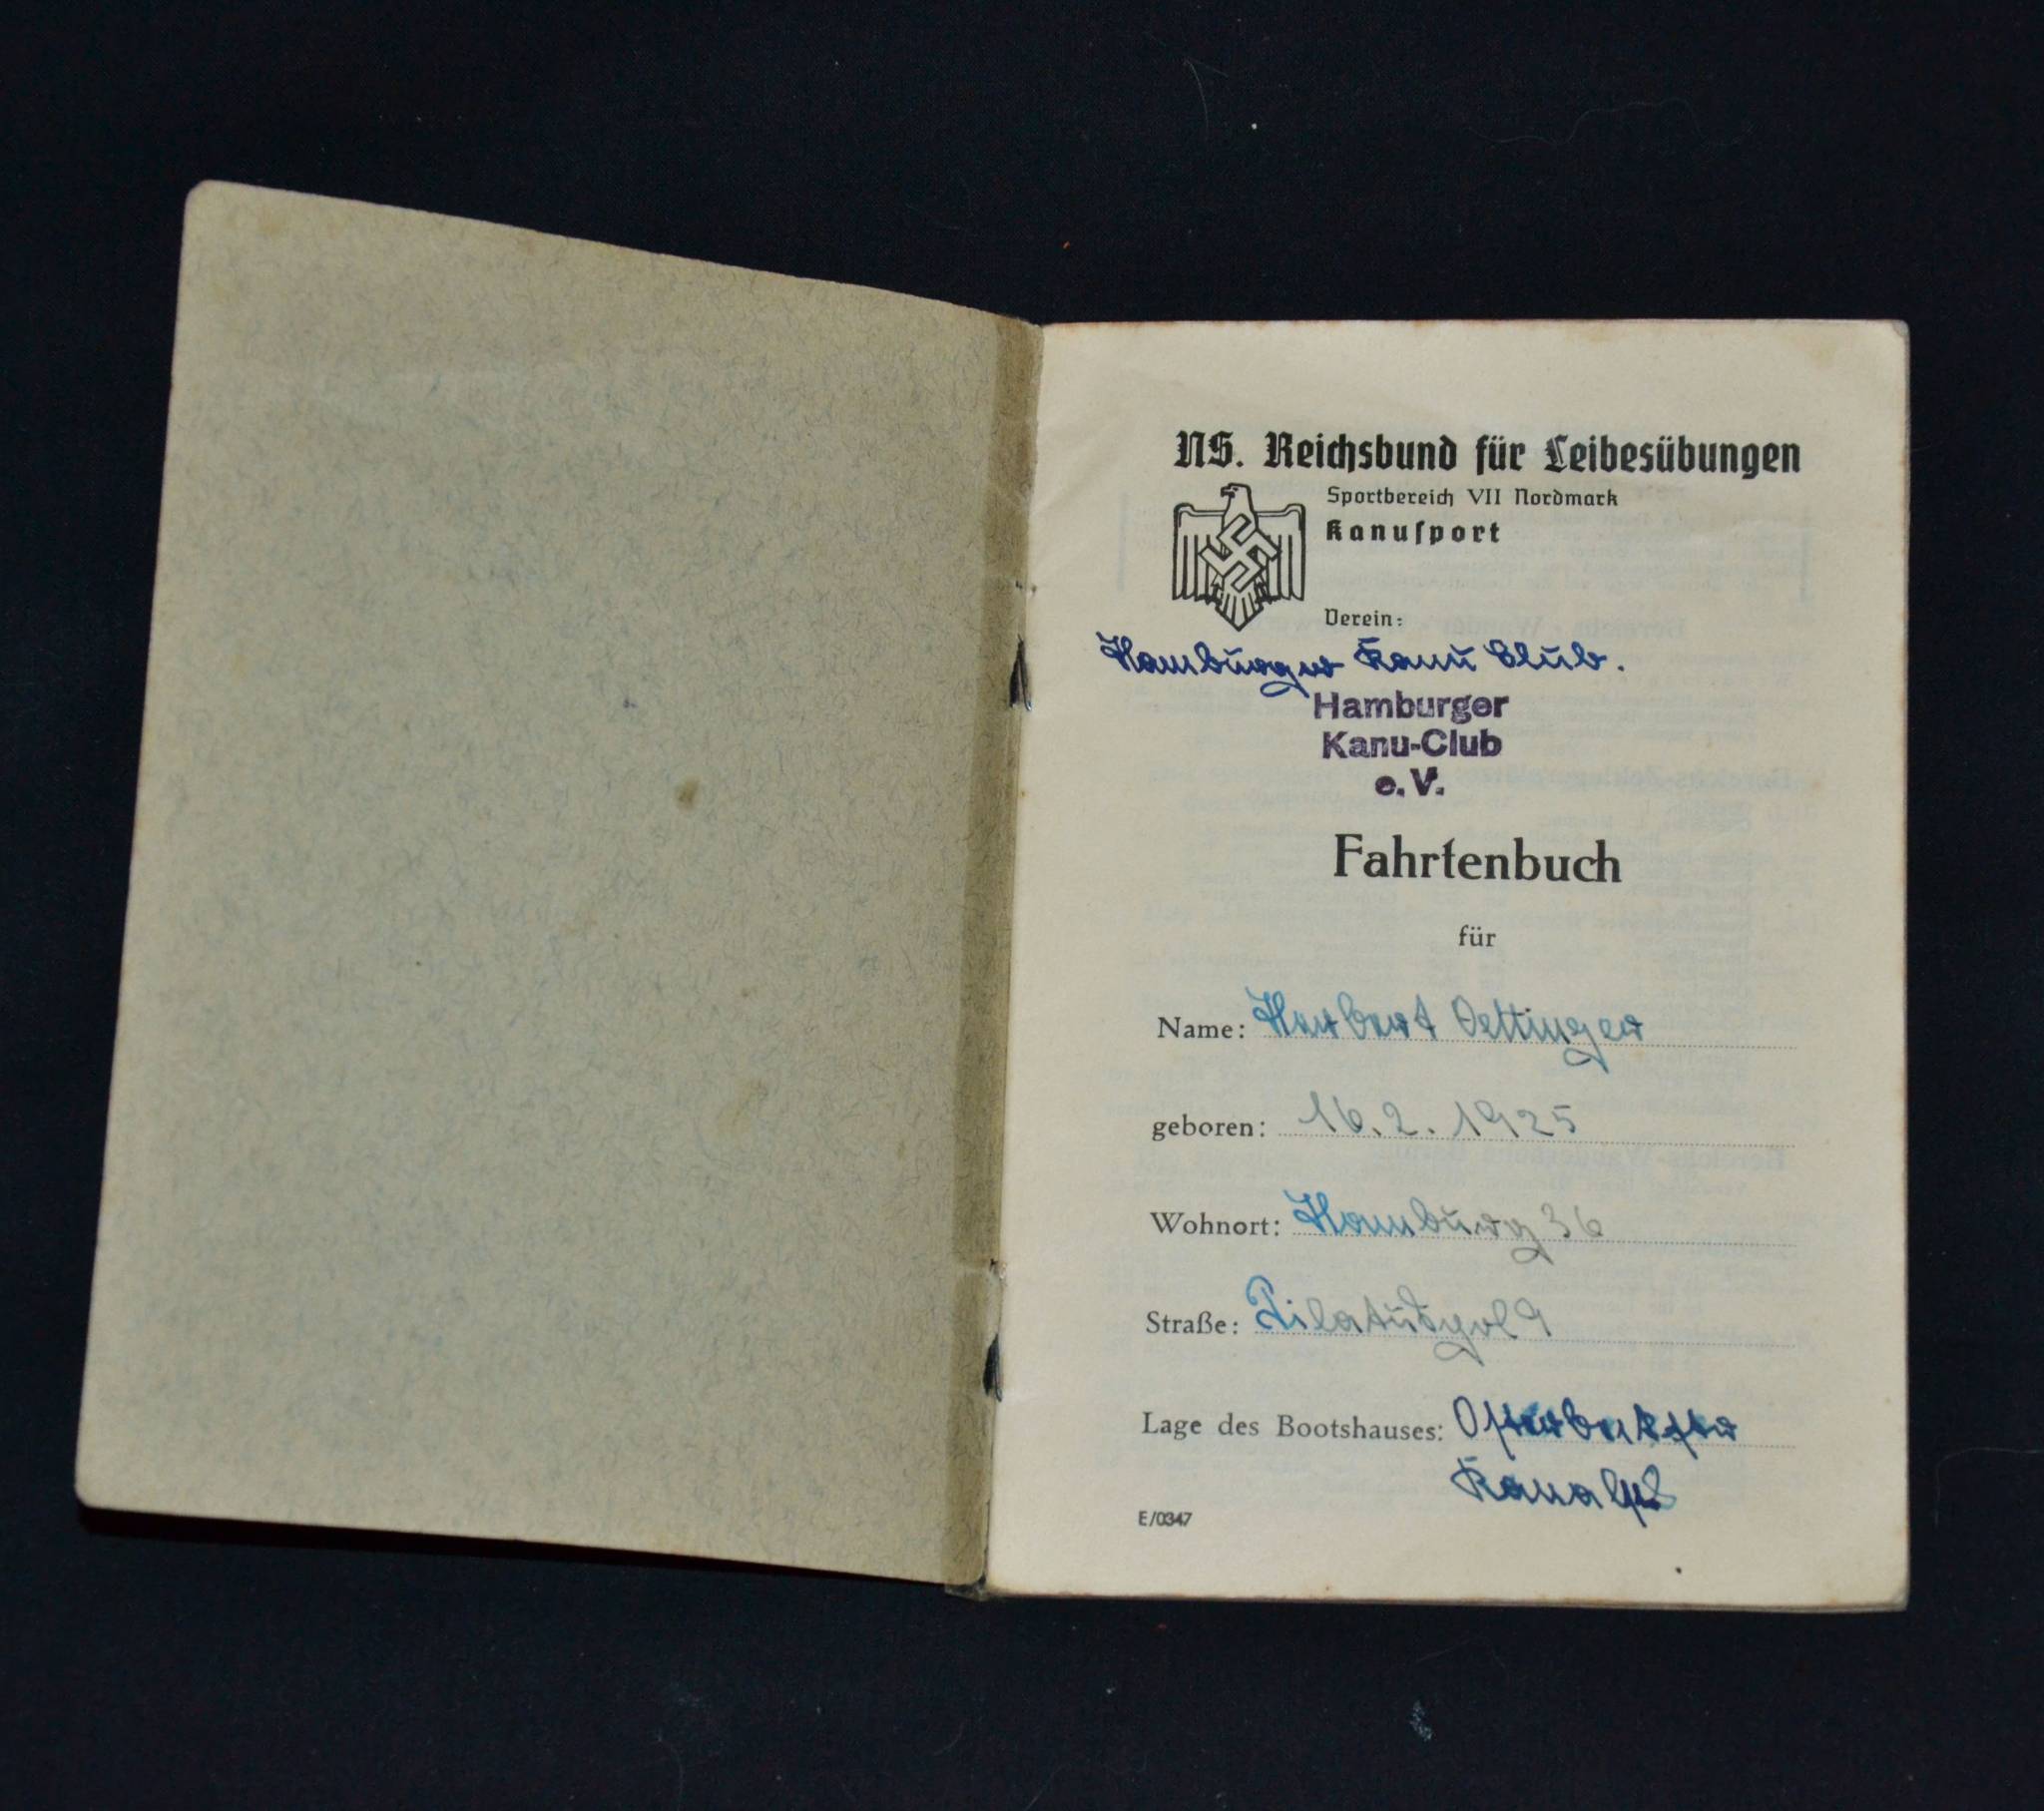 NS. Reichsbund für Leibesübungen
Sportbereich VII Nordmark
Kanusport
Verein:
Hamburger Kanu Club.
Hamburger
Kanu-Club
e.V.
Fahrtenbuch
für
Name: Herbert Oettinger
geboren: 16.2.1925
Wohnort: Hamburg 36
Straße: Pilatuspol 9
Lage des Bootshauses:
E/0347